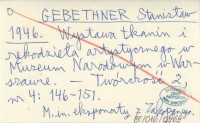 GEBETHNER Stanisław
1946. Wystawa tkanin i
rękodzieła artystycznego w
Muzeum Narodowym w War-
szawie. – Twórczość 2,
nr 4: 146-151.
M.in. eksponaty z Zakopanego.